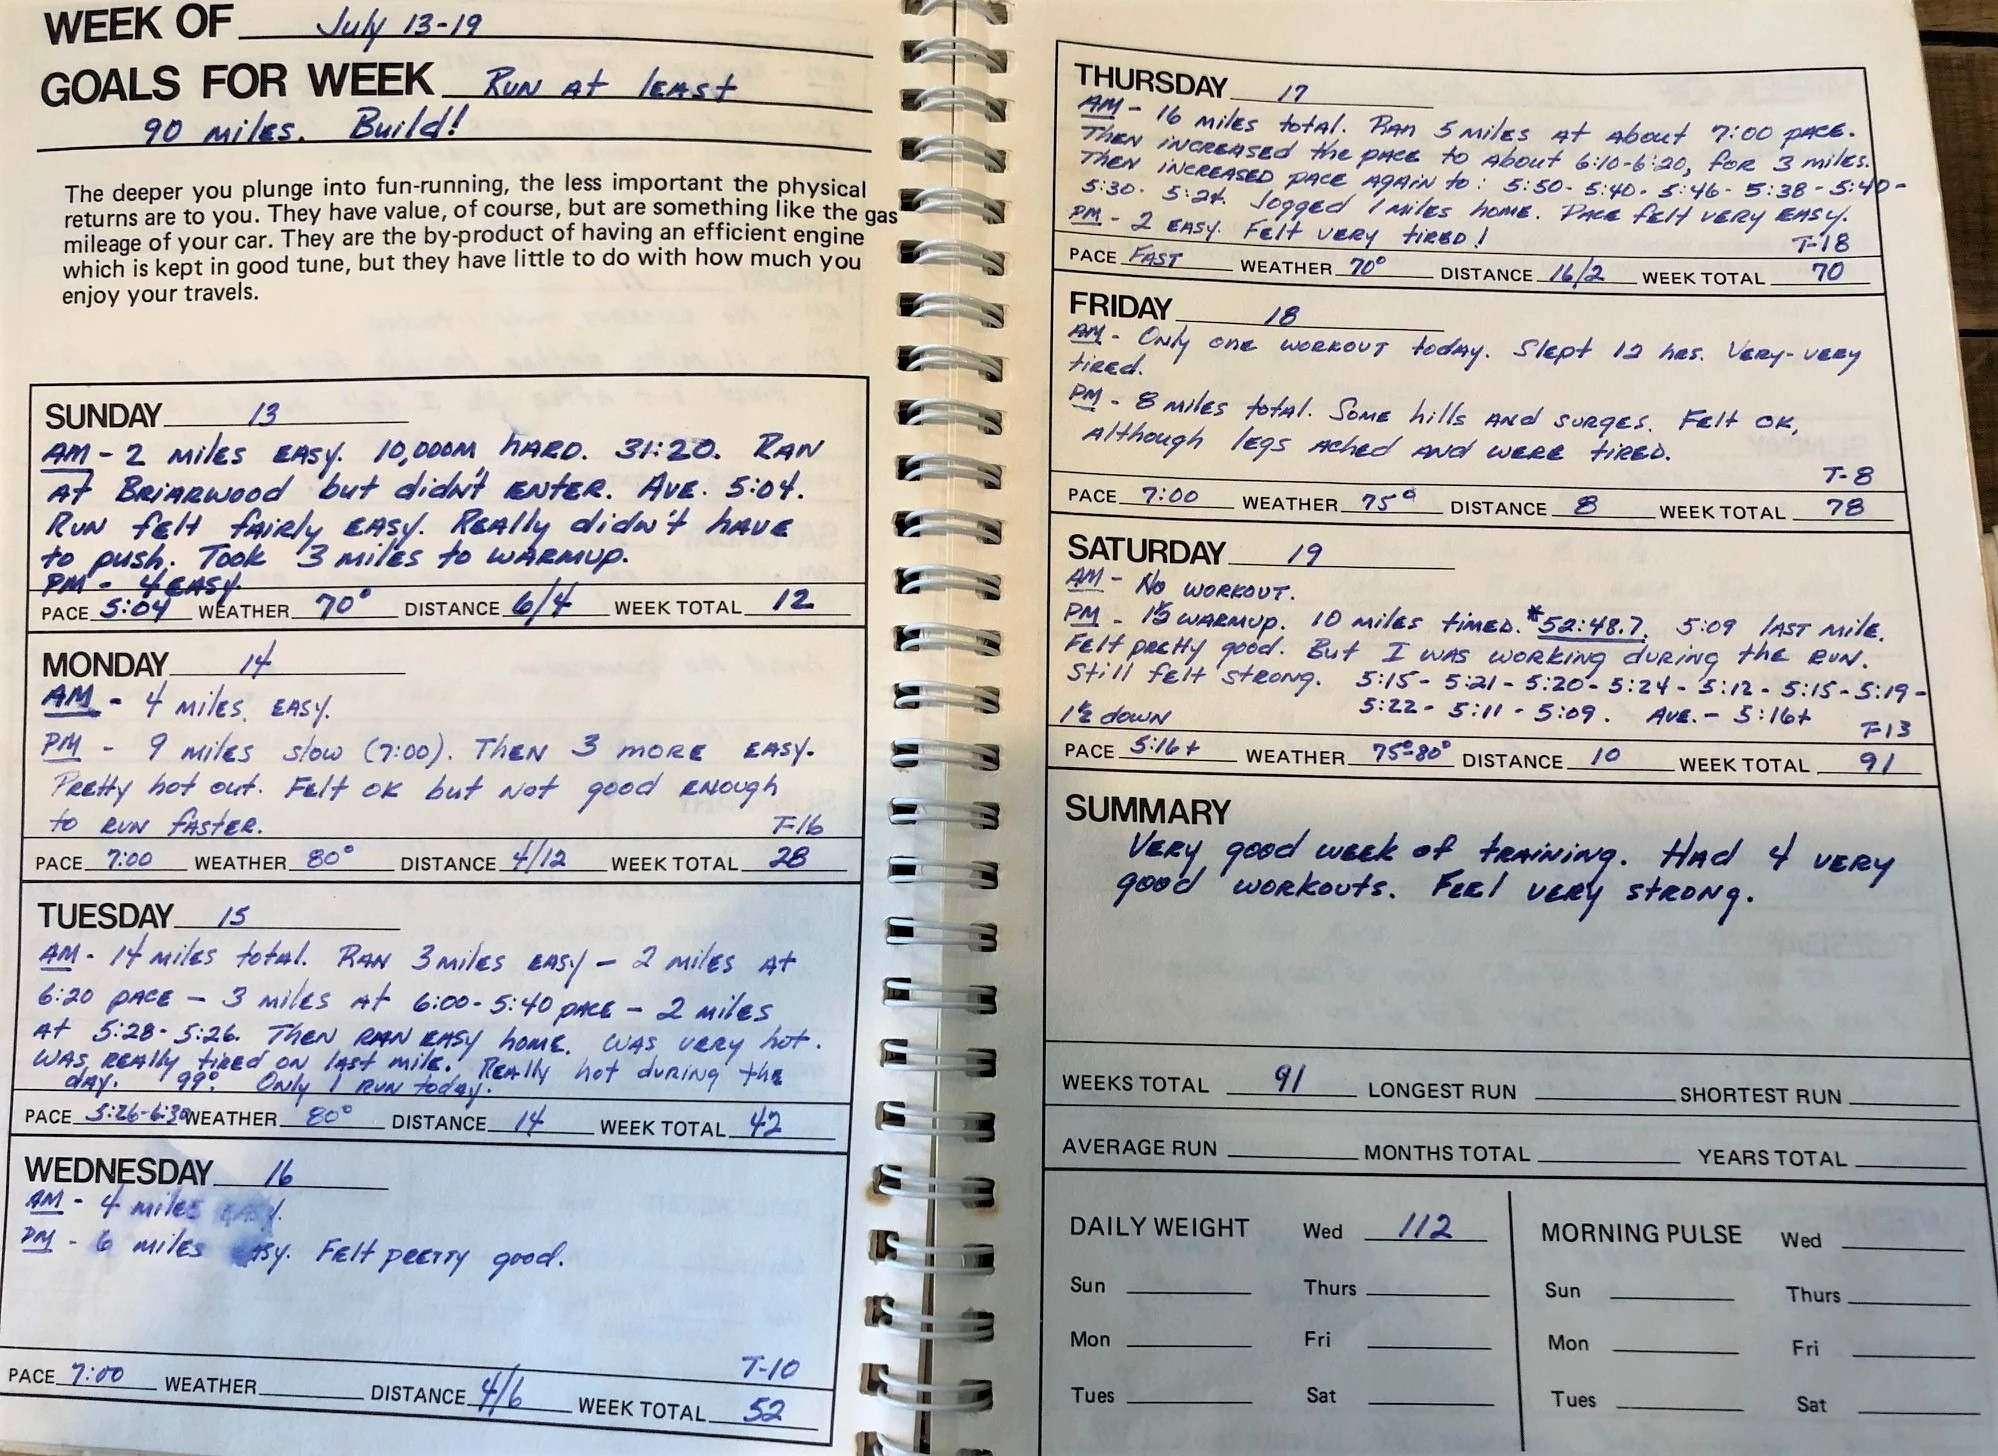 WEEK OF July 13-19
GOALS FOR WEEK Run at least
90 miles. Build!
The deeper you plunge into fun-running, the less important the physical
returns are to you. They have value, of course, but are something like the gas
mileage of your car. They are the by-product of having an efficient engine
which is kept in good tune, but they have little to do with how much you
enjoy your travels.
SUNDAY 13
AM - 2 miles easy. 10,000m hard. 31:20. Ran
at Briarwood but didn't enter. Ave. 5:04.
Run felt fairly easy. Really didn't have
to push. Took 3 miles to warmup.
PM - 4 easy.
PACE 5:04 WEATHER 70° DISTANCE 6/4 WEEK TOTAL 12
MONDAY 14
AM - 4 miles easy.
PM - 9 miles slow (7:00). Then 3 more easy.
Pretty hot out. Felt ok but not good enough
to run faster. T-16
PACE 7:00 WEATHER 80° DISTANCE 4/12 WEEK TOTAL 28
TUESDAY 15
AM - 14 miles total. Ran 3 miles easy - 2 miles at
6:20 pace - 3 miles at 6:00-5:40 pace - 2 miles
at 5:28-5:26. Then ran easy home. Was very hot.
Was really tired on last mile. Really hot during the
day. 99° Only 1 run today.
PACE 5:26-6:30 WEATHER 80° DISTANCE 14 WEEK TOTAL 42
WEDNESDAY 16
AM - 4 miles easy.
PM - 6 miles easy. Felt pretty good.
T-10
PACE 7:00 WEATHER DISTANCE 4/6 WEEK TOTAL 52
THURSDAY 17
AM - 16 miles total. Ran 5 miles at about 7:00 pace.
Then increased the pace to about 6:10-6:20, for 3 miles.
Then increased pace again to: 5:50-5:40-5:46-5:38-5:40-
5:30-5:24. Jogged 1 miles home. Pace felt very easy.
PM - 2 easy. Felt very tired! T-18
PACE Fast WEATHER 70° DISTANCE 16/2 WEEK TOTAL 70
FRIDAY 18
AM - Only one workout today. Slept 12 hrs. Very-very
tired.
PM - 8 miles total. Some hills and surges. Felt ok,
although legs ached and were tired.
T-8
PACE 7:00 WEATHER 75° DISTANCE 8 WEEK TOTAL 78
SATURDAY 19
AM - No workout.
PM - 1½ warmup. 10 miles timed. *52:48.7. 5:09 last mile.
Felt pretty good. But I was working during the run.
Still felt strong. 5:15-5:21-5:20-5:24-5:12-5:15-5:19-
5:22-5:11-5:09. Ave. - 5:16+
1½ down T-13
PACE 5:16+ WEATHER 75°-80° DISTANCE 10 WEEK TOTAL 91
SUMMARY
Very good week of training. Had 4 very
good workouts. Feel very strong.
WEEKS TOTAL 91 LONGEST RUN SHORTEST RUN
AVERAGE RUN MONTHS TOTAL YEARS TOTAL
DAILY WEIGHT Wed 112
Sun Thurs
Mon Fri
Tues Sat
MORNING PULSE Wed
Sun Thurs
Mon Fri
Tues Sat